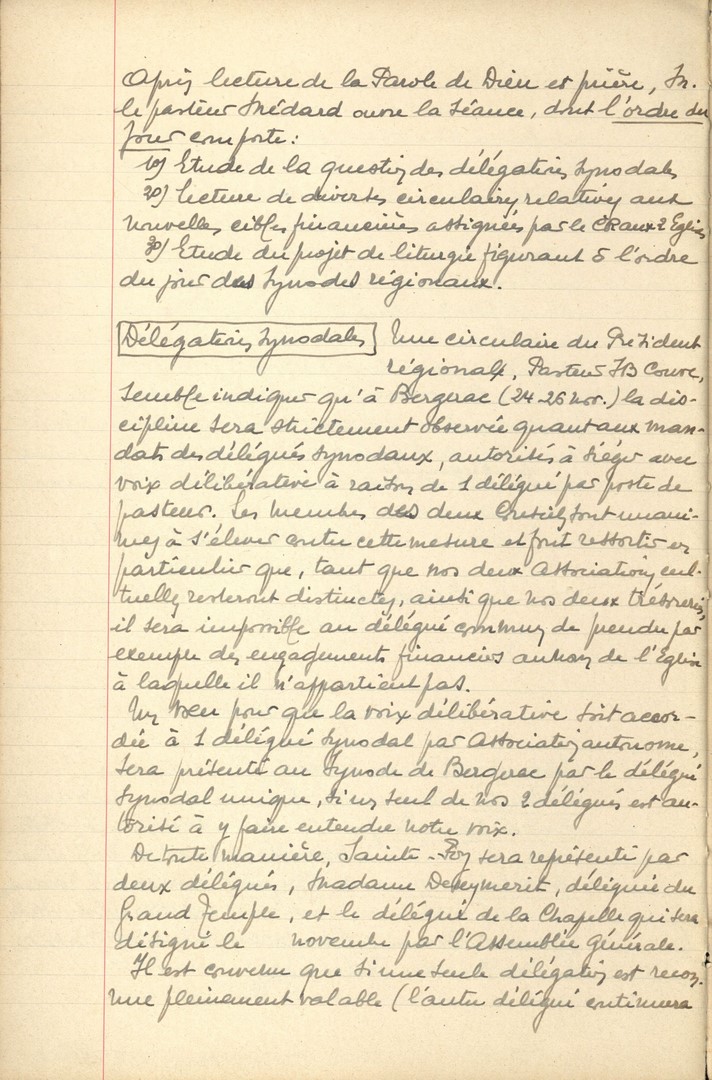 Après lecture de la Parole de Dieu et prière, M.
le pasteur Médard ouvre la Séance, dont l'ordre du
jour comporte :
1º) Etude de la question des délégations synodales
2º) Lecture de diverses circulaires relatives aux
nouvelles cibles financières assignées par le CR aux 2 Eglises
3º) Etude du projet de liturgie figurant à l'ordre
du jour des Synodes régionaux.
Délégations synodales Une circulaire du Président
régional, Pasteur JB Couve,
semble indiquer qu'à Bergerac (24-26 nov.) la dis-
cipline sera strictement observée quant aux man-
dats des délégués synodaux, autorisés à siéger avec
voix délibérative à raison de 1 délégué par poste de
pasteur. Les membres des deux Conseils sont unani-
mes à s'élever contre cette mesure et font ressortir en
particulier que, tant que nos deux Associations cul-
tuelles resteront distinctes, ainsi que nos deux trésoreries,
il sera impossible au délégué commun de prendre par
exemple des engagements financiers au nom de l'Eglise
à laquelle il n'appartient pas.
Un voeu pour que la voix délibérative soit accor-
dée à 1 délégué synodal par Association autonome,
sera présenté au Synode de Bergerac par le délégué
synodal unique, si un seul de nos 2 délégués est au-
torisé à y faire entendre notre voix.
De toute manière, Sainte-Foy sera représenté par
deux délégués, Madame , déléguée du
Grand Temple, et le délégué de la Chapelle qui sera
désigné le novembre par l'Assemblée Générale.
Il est convenu que si une seule délégation est recon-
nue pleinement valable (l'autre délégué continuera